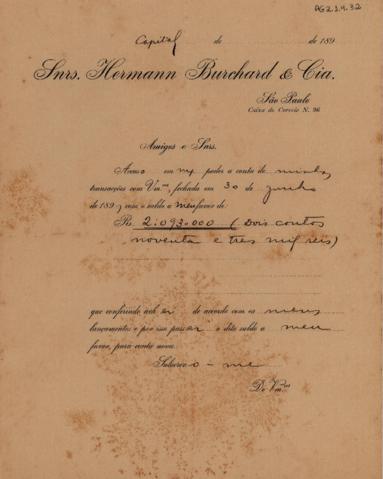 AG2.1.9.32
Capital de de 189
Snrs. Hermann Burchard & Cia.
São Paulo
Caixa do Correio N. 96
Amigos e Snrs.
Accuso em meu poder a conta de minhas
transacções com Vmces, fechada em 30 de Junho
de 189 , cujo saldo a meu favor de:
Rs 2:093.000 (Dois contos
noventa e tres mil reis)
que conferindo achei de accordo com os meus
lançamentos e por isso passei o dito saldo a meu
favor, para conta nova.
Subscrevo-me
De Vmces